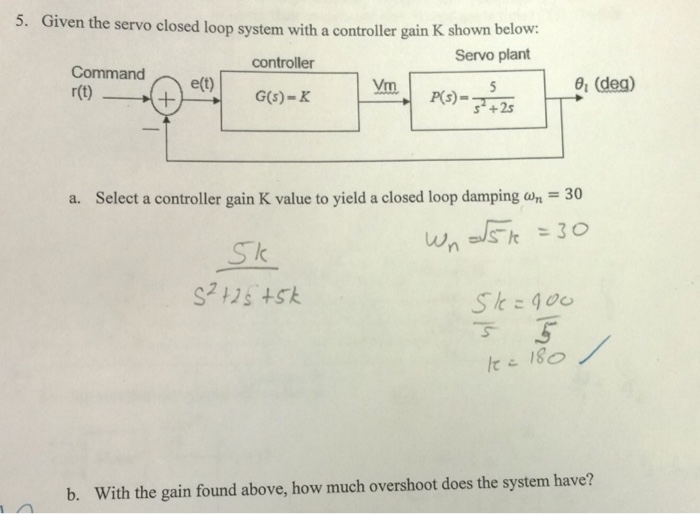 5. Given the servo closed loop system with a controller gain K shown below:
controller
Servo plant
Command
r(t)
+
−
e(t)
G(s) = K
Vm
P(s) = 5 / s² + 2s
θ₁ (deg)
a. Select a controller gain K value to yield a closed loop damping ωₙ = 30
5k / s² + 2s + 5k
Wn = √5k = 30
5k = 900
5 5
k = 180 /
b. With the gain found above, how much overshoot does the system have?